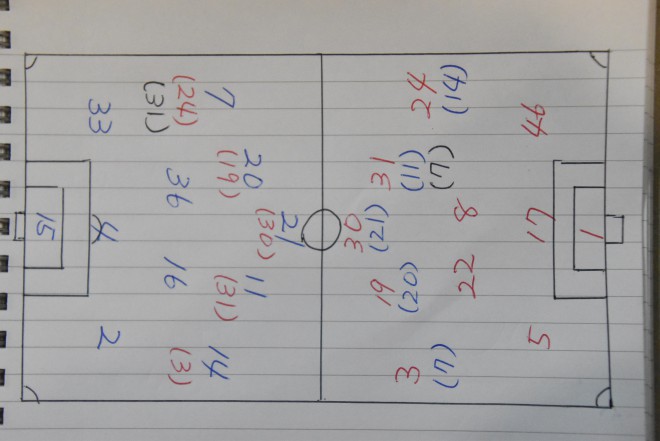 21
(30)
20
(19)
11
(31)
7
(24)
(31)
14
(3)
36
16
33
4
2
15
30
(21)
3
(7)
19
(20)
31
(11)
(7)
24
(14)
22
8
5
17
44
1